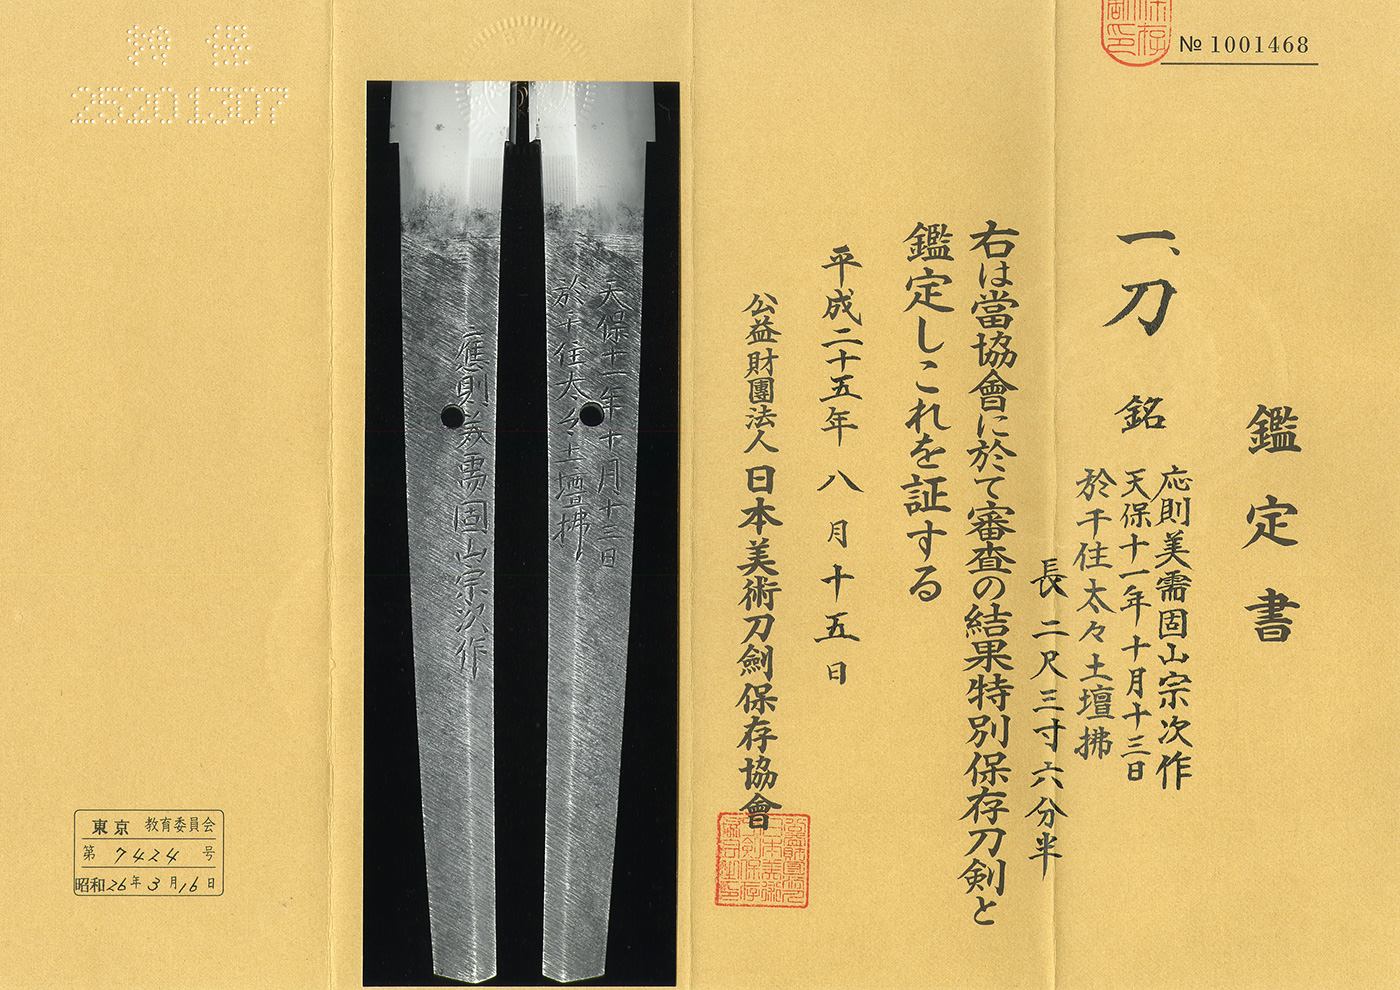 № 1001468
鑑定書
一、刀 銘 応則美需固山宗次作
天保十一年十月十三日
於千住太々土壇拂
長 二尺三寸六分半
右は當協會に於て審査の結果特別保存刀剣と
鑑定しこれを証する
平成二十五年 八月十五日
公益財團法人 日本美術刀劍保存協會
天保十一年十月十三日
於千住太々土壇拂
應則美需固山宗次作
25201307
東京 教育委員会
第 7424 号
昭和26年3月16日